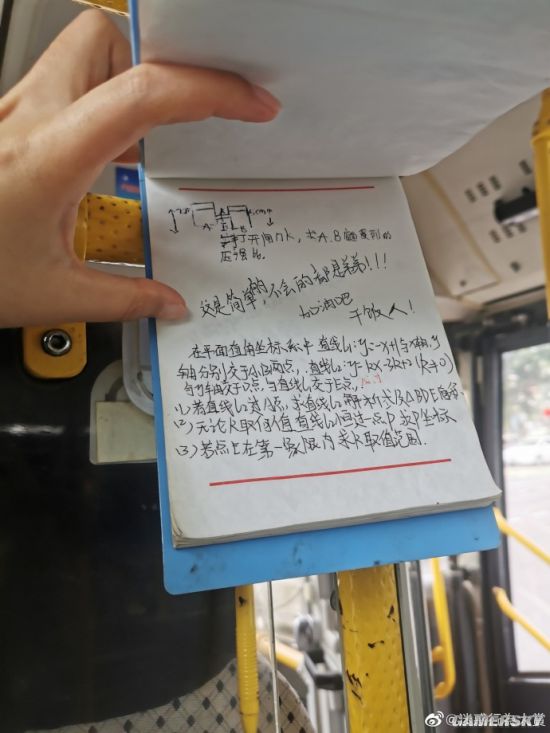 A B
打开闸门K，求A.B
压强比
这是简单的，不会的都是弟弟!!!
加油吧
干饭人!
在平面直角坐标系中 直线L₁:y=-x+1与x轴,y
轴分别交于A,B两点，直线L₂:y=kx-2k+2(k≠0)
与y轴交于D点，与直线L₁交于E点，
(1) 若直线L₂过A点，求直线L₂解析式及△BDE面积
(2) 无论k取何值,直线L₂恒过一点P,求P坐标
(3) 若点E在第一象限内 求k取值范围.
@迷惑行为大赏
GAMERSKY